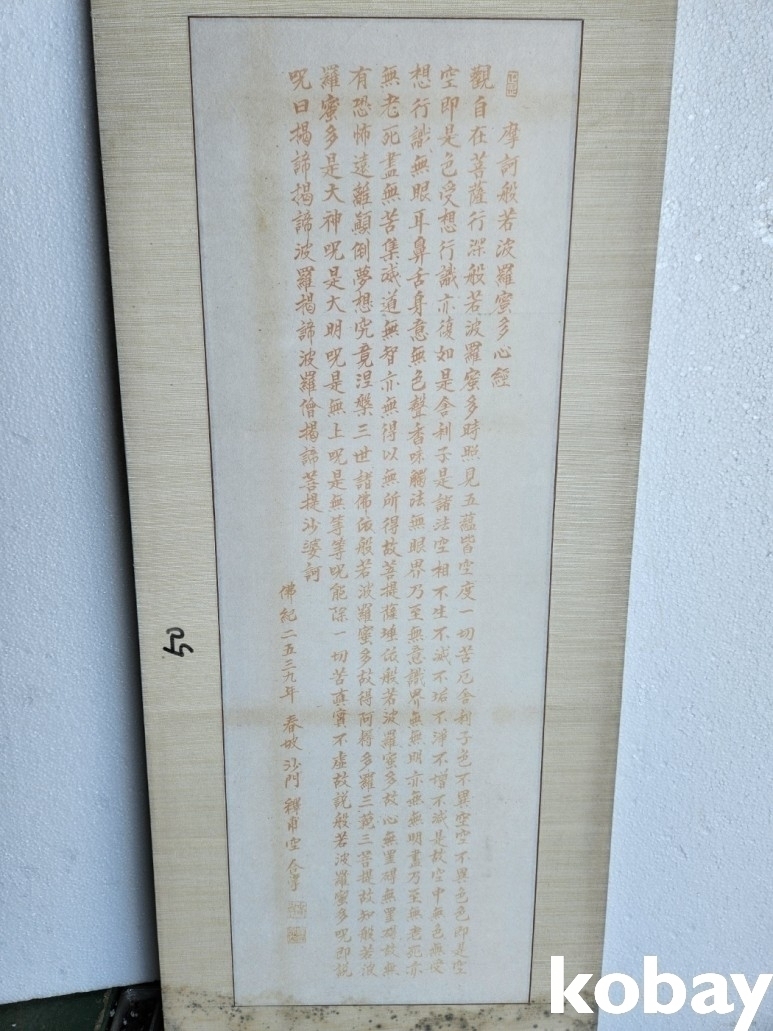 摩訶般若波羅蜜多心經
觀自在菩薩行深般若波羅蜜多時照見五蘊皆空度一切苦厄舍利子色不異空空不異色色即是空
空即是色受想行識亦復如是舍利子是諸法空相不生不滅不垢不淨不增不減是故空中無色無受
想行識無眼耳鼻舌身意無色聲香味觸法無眼界乃至無意識界無無明亦無無明盡乃至無老死亦
無老死盡無苦集滅道無智亦無得以無所得故菩提薩埵依般若波羅蜜多故心無罣礙無罣礙故無
有恐怖遠離顛倒夢想究竟涅槃三世諸佛依般若波羅蜜多故得阿耨多羅三藐三菩提故知般若波
羅蜜多是大神呪是大明呪是無上呪是無等等呪能除一切苦真實不虛故說般若波羅蜜多呪即說
呪曰揭諦揭諦波羅揭諦波羅僧揭諦菩提沙婆訶
佛紀二五三九年 春 沙門 釋 空
50
kobay